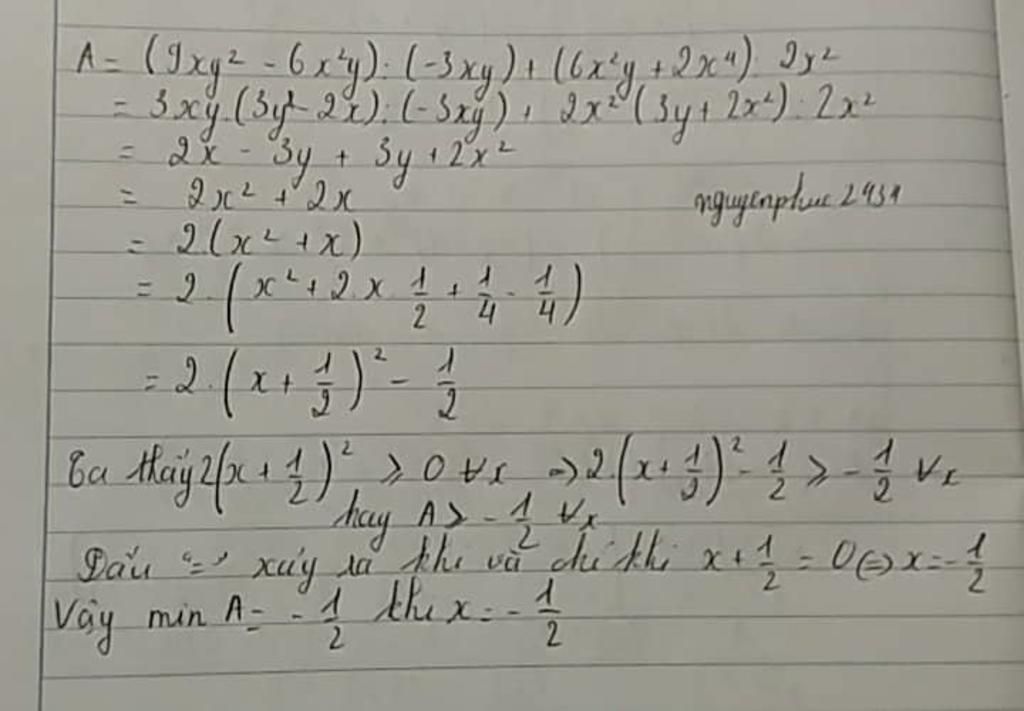 A = (9xy² - 6x²y) : (-3xy) + (6x²y + 2x⁴) : 2x²
= 3xy.(3y - 2x) : (-3xy) + 2x² (3y + 2x²) : 2x²
= 2x - 3y + 3y + 2x²
= 2x² + 2x
nguyenphuc2931
= 2.(x² + x)
= 2.(x² + 2.x.1/2 + 1/4 - 1/4)
= 2.(x + 1/2)² - 1/2
Ta thấy 2(x + 1/2)² ≥ 0 ∀x ⇒ 2.(x + 1/2)² - 1/2 ≥ -1/2 ∀x
hay A ≥ -1/2 ∀x
Dấu "=" xảy ra khi và chỉ khi x + 1/2 = 0 ⇔ x = -1/2
Vậy min A = -1/2 khi x = -1/2